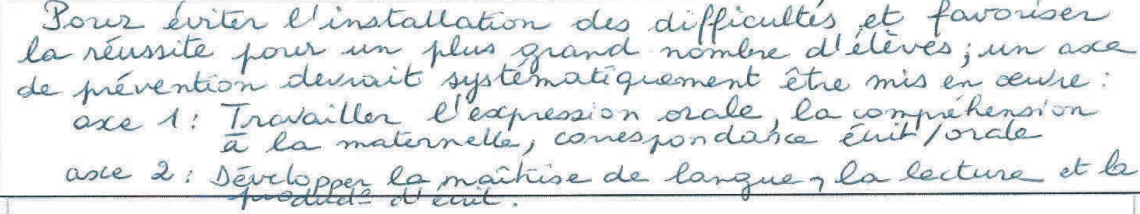 Pour éviter l'installation des difficultés et favoriser
la réussite pour un plus grand nombre d'élèves; un axe
de prévention devrait systématiquement être mis en œuvre :
axe 1 : Travailler l'expression orale, la compréhension
à la maternelle, correspondance écrit/orale
axe 2 : Développer la maîtrise de langue, la lecture et la
product° d'écrit.